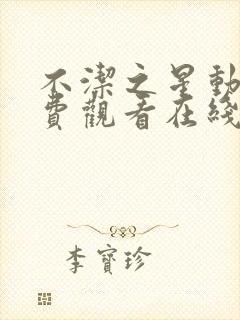 不潔之星動
費觀看在綫
李寶珍